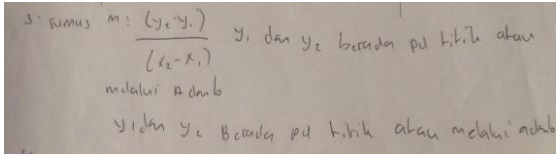 3. rumus m: (y₂-y₁) / (x₂-x₁) y₁ dan y₂ berada pd titik atau
melalui A dan b
y₁ dan y₂ Berada pd titik atau melalui a dan b